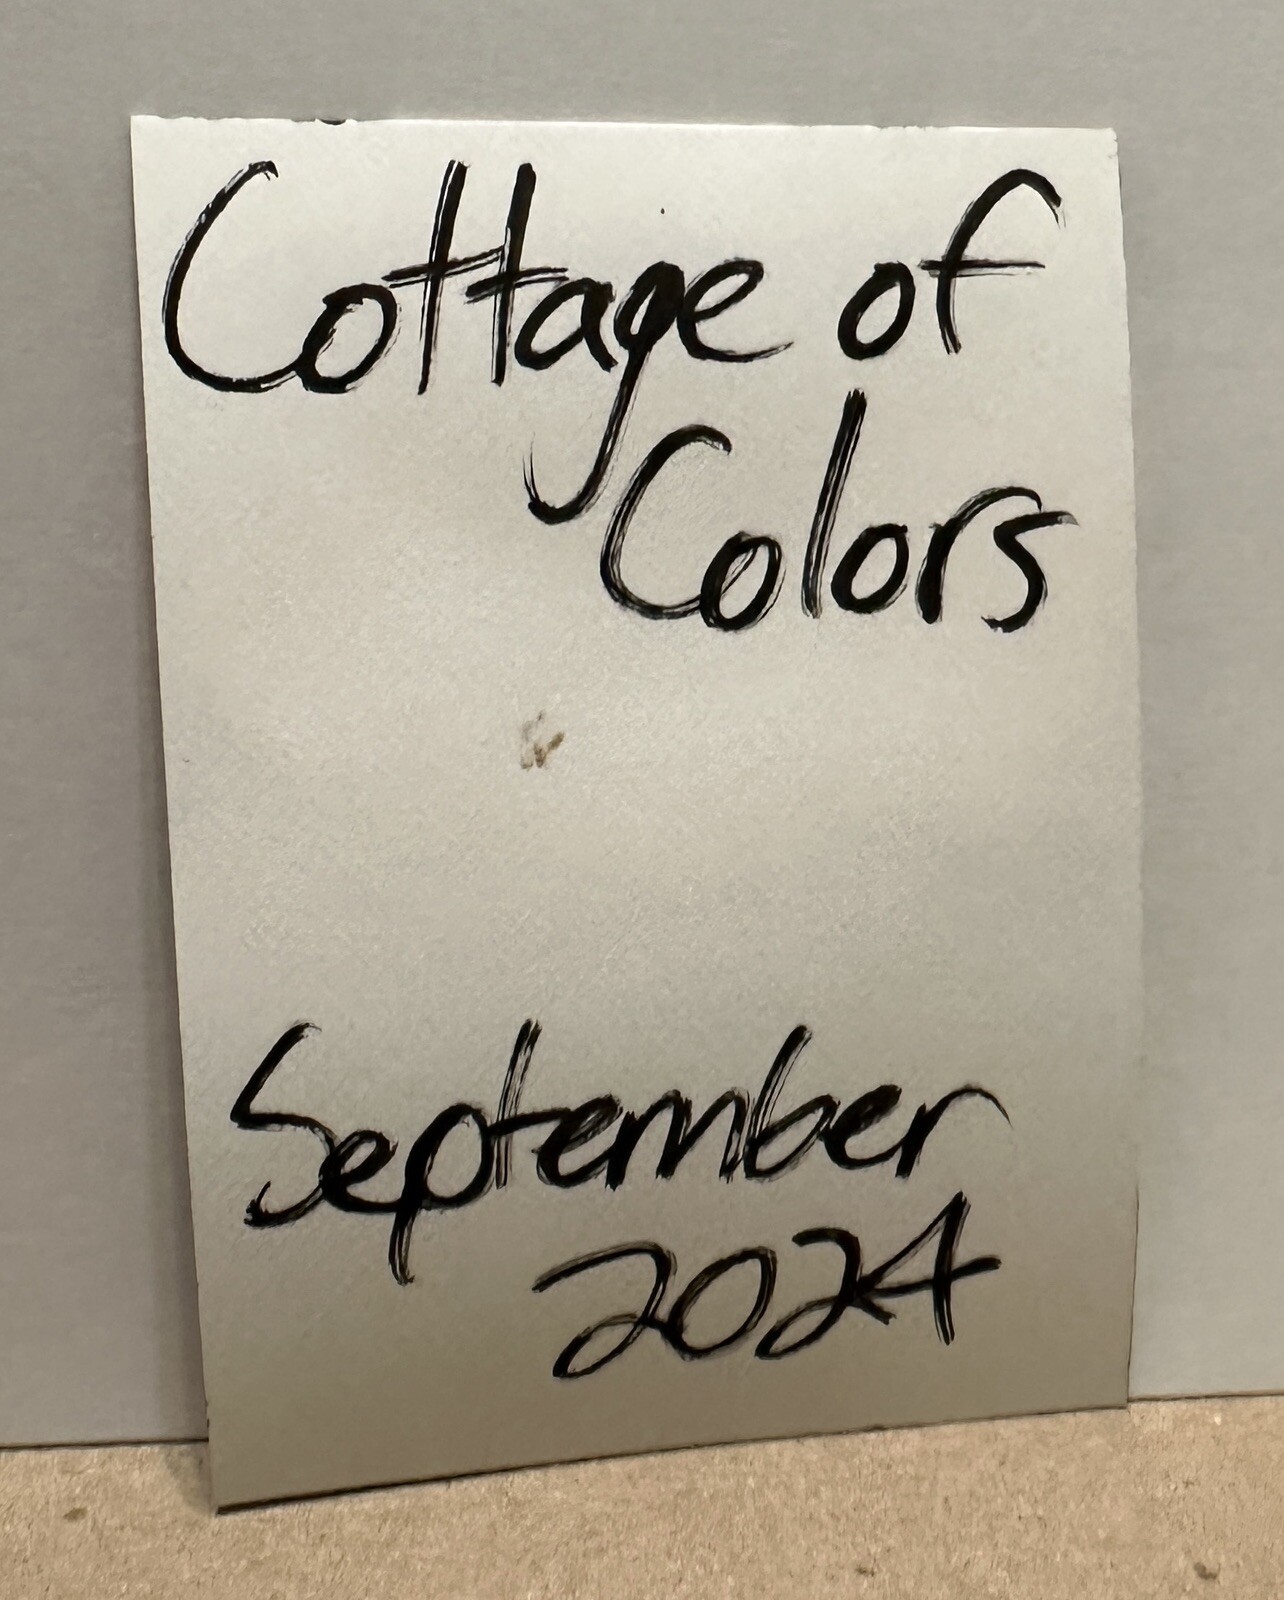 Cottage of
Colors
September
2024